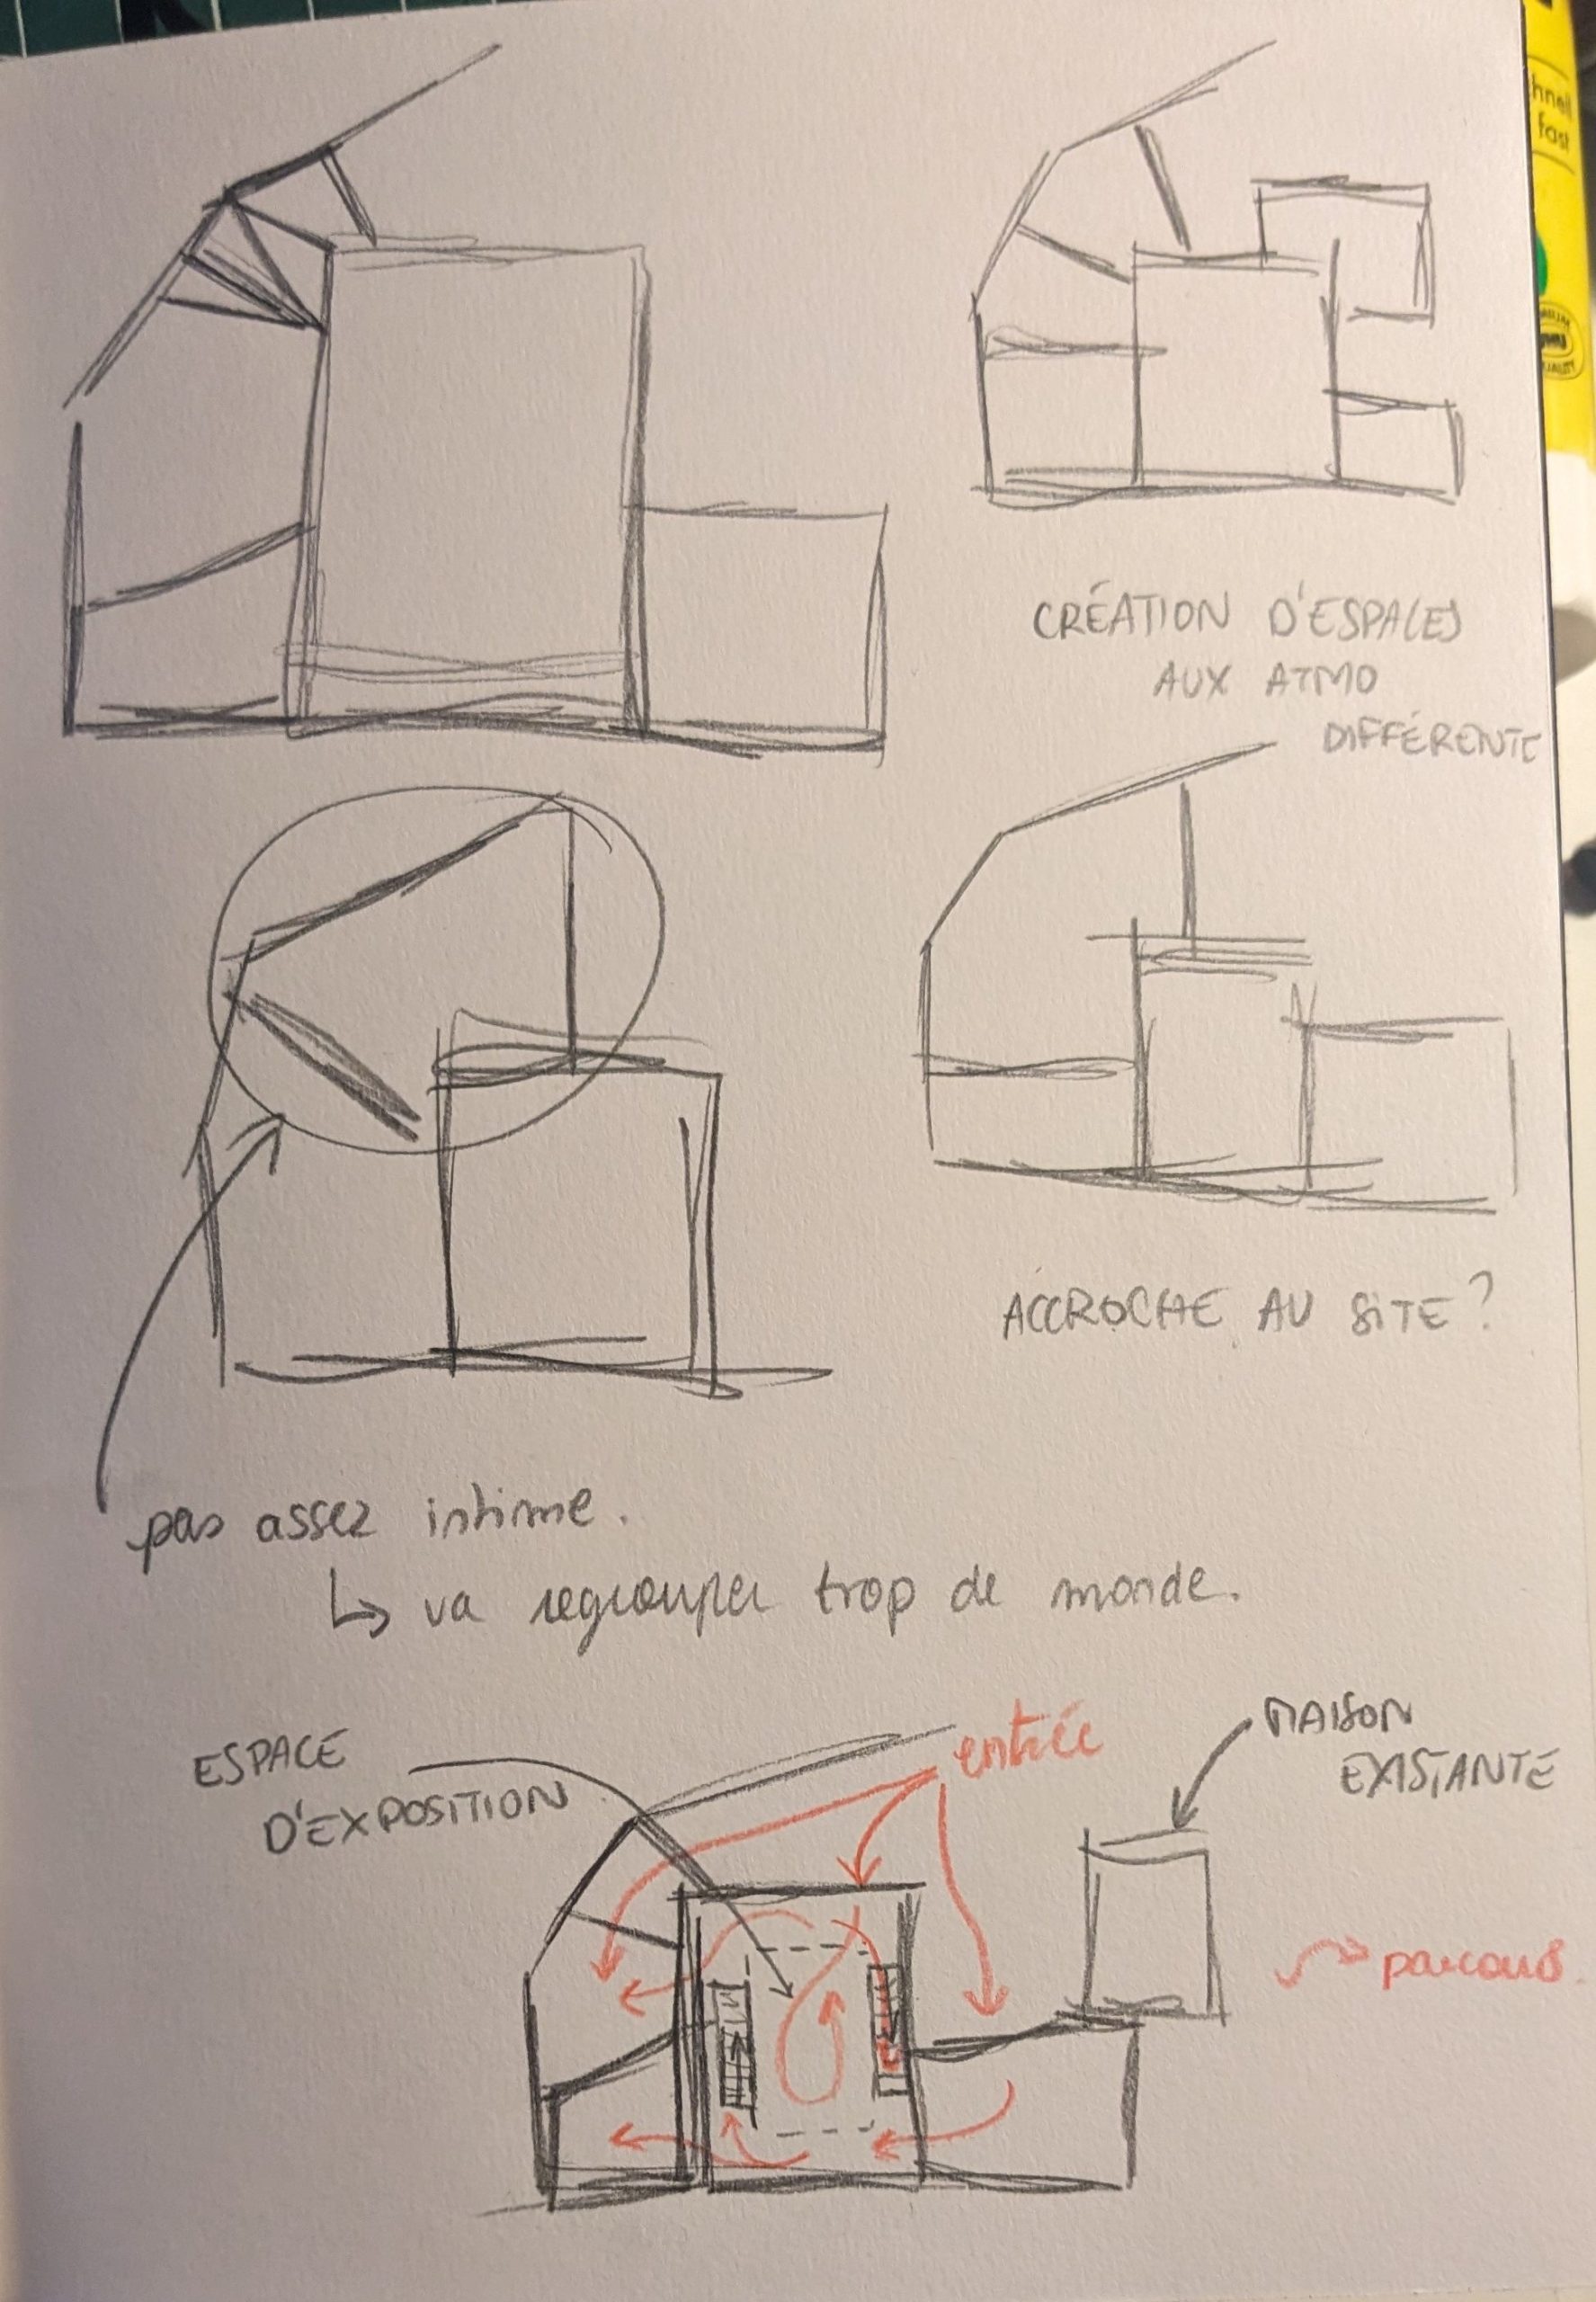 hnell
fast
CRÉATION D'ESPACES
AUX ATMO
DIFFÉRENTE
ACCROCHE AU SITE ?
pas assez intime.
↳ va regrouper trop de monde.
ESPACE
D'EXPOSITION
entrée
MAISON
EXISTANTE
parcours